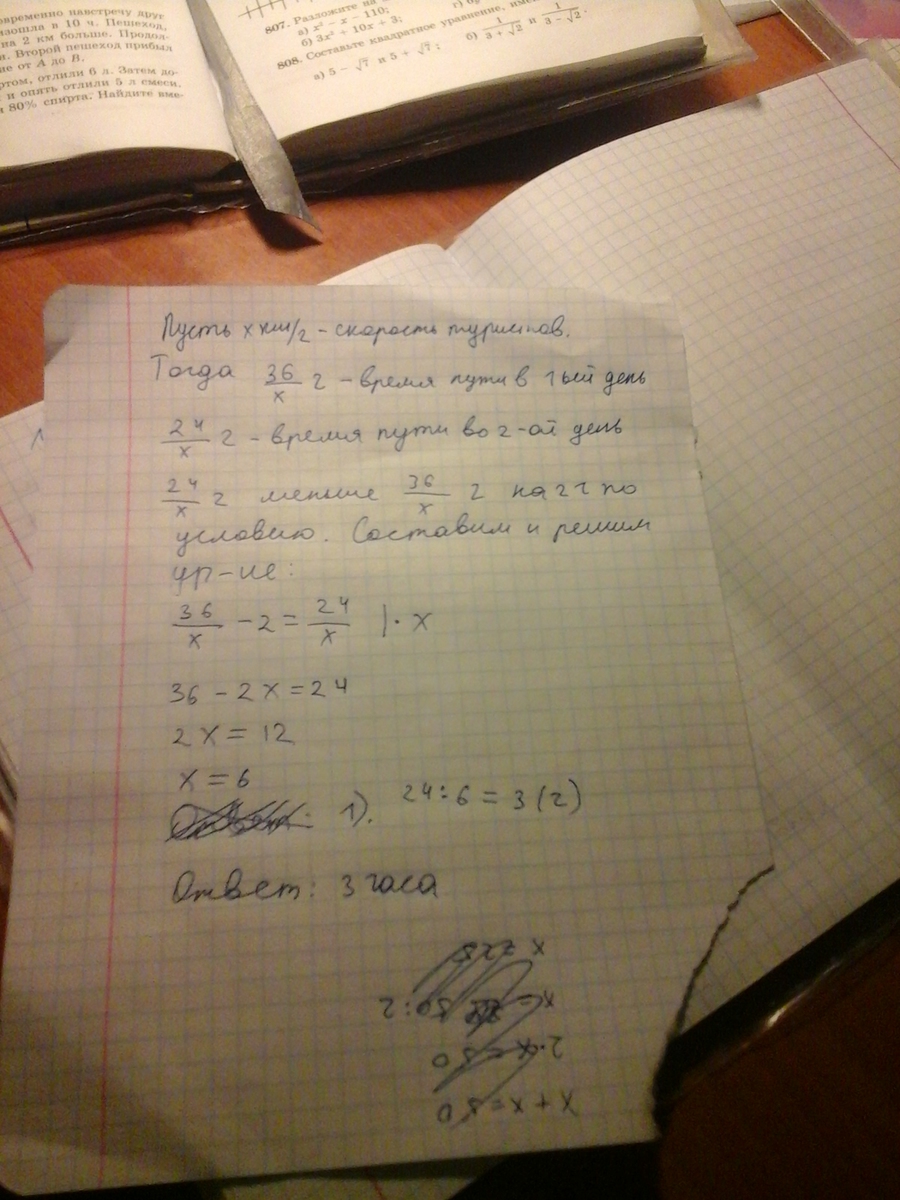 временно навстречу друг
изошла в 10 ч. Пешеход,
на 2 км больше. Продол-
Второй пешеход прибыл
от А до В.
ртом, отлили 6 л. Затем до-
и опять отлили 5 л смеси.
80% спирта. Найдите вме-
807. Разложите на
а) x² - x - 110;
б) 3x² + 10x + 3;
808. Составьте квадратное уравнение,
а) 5 - √7 и 5 + √7;
б) 1/(3 + √2) и 1/(3 - √2).
Пусть x км/г - скорость туристов.
Тогда 36/x г - время пути в 1 ый день
24/x г - время пути во 2-ой день
24/x г меньше 36/x г на 2 г по
условию. Составим и решим
ур-ие:
36/x - 2 = 24/x |· x
36 - 2x = 24
2x = 12
x = 6
1). 24:6 = 3 (г)
Ответ: 3 часа
x + x = 50